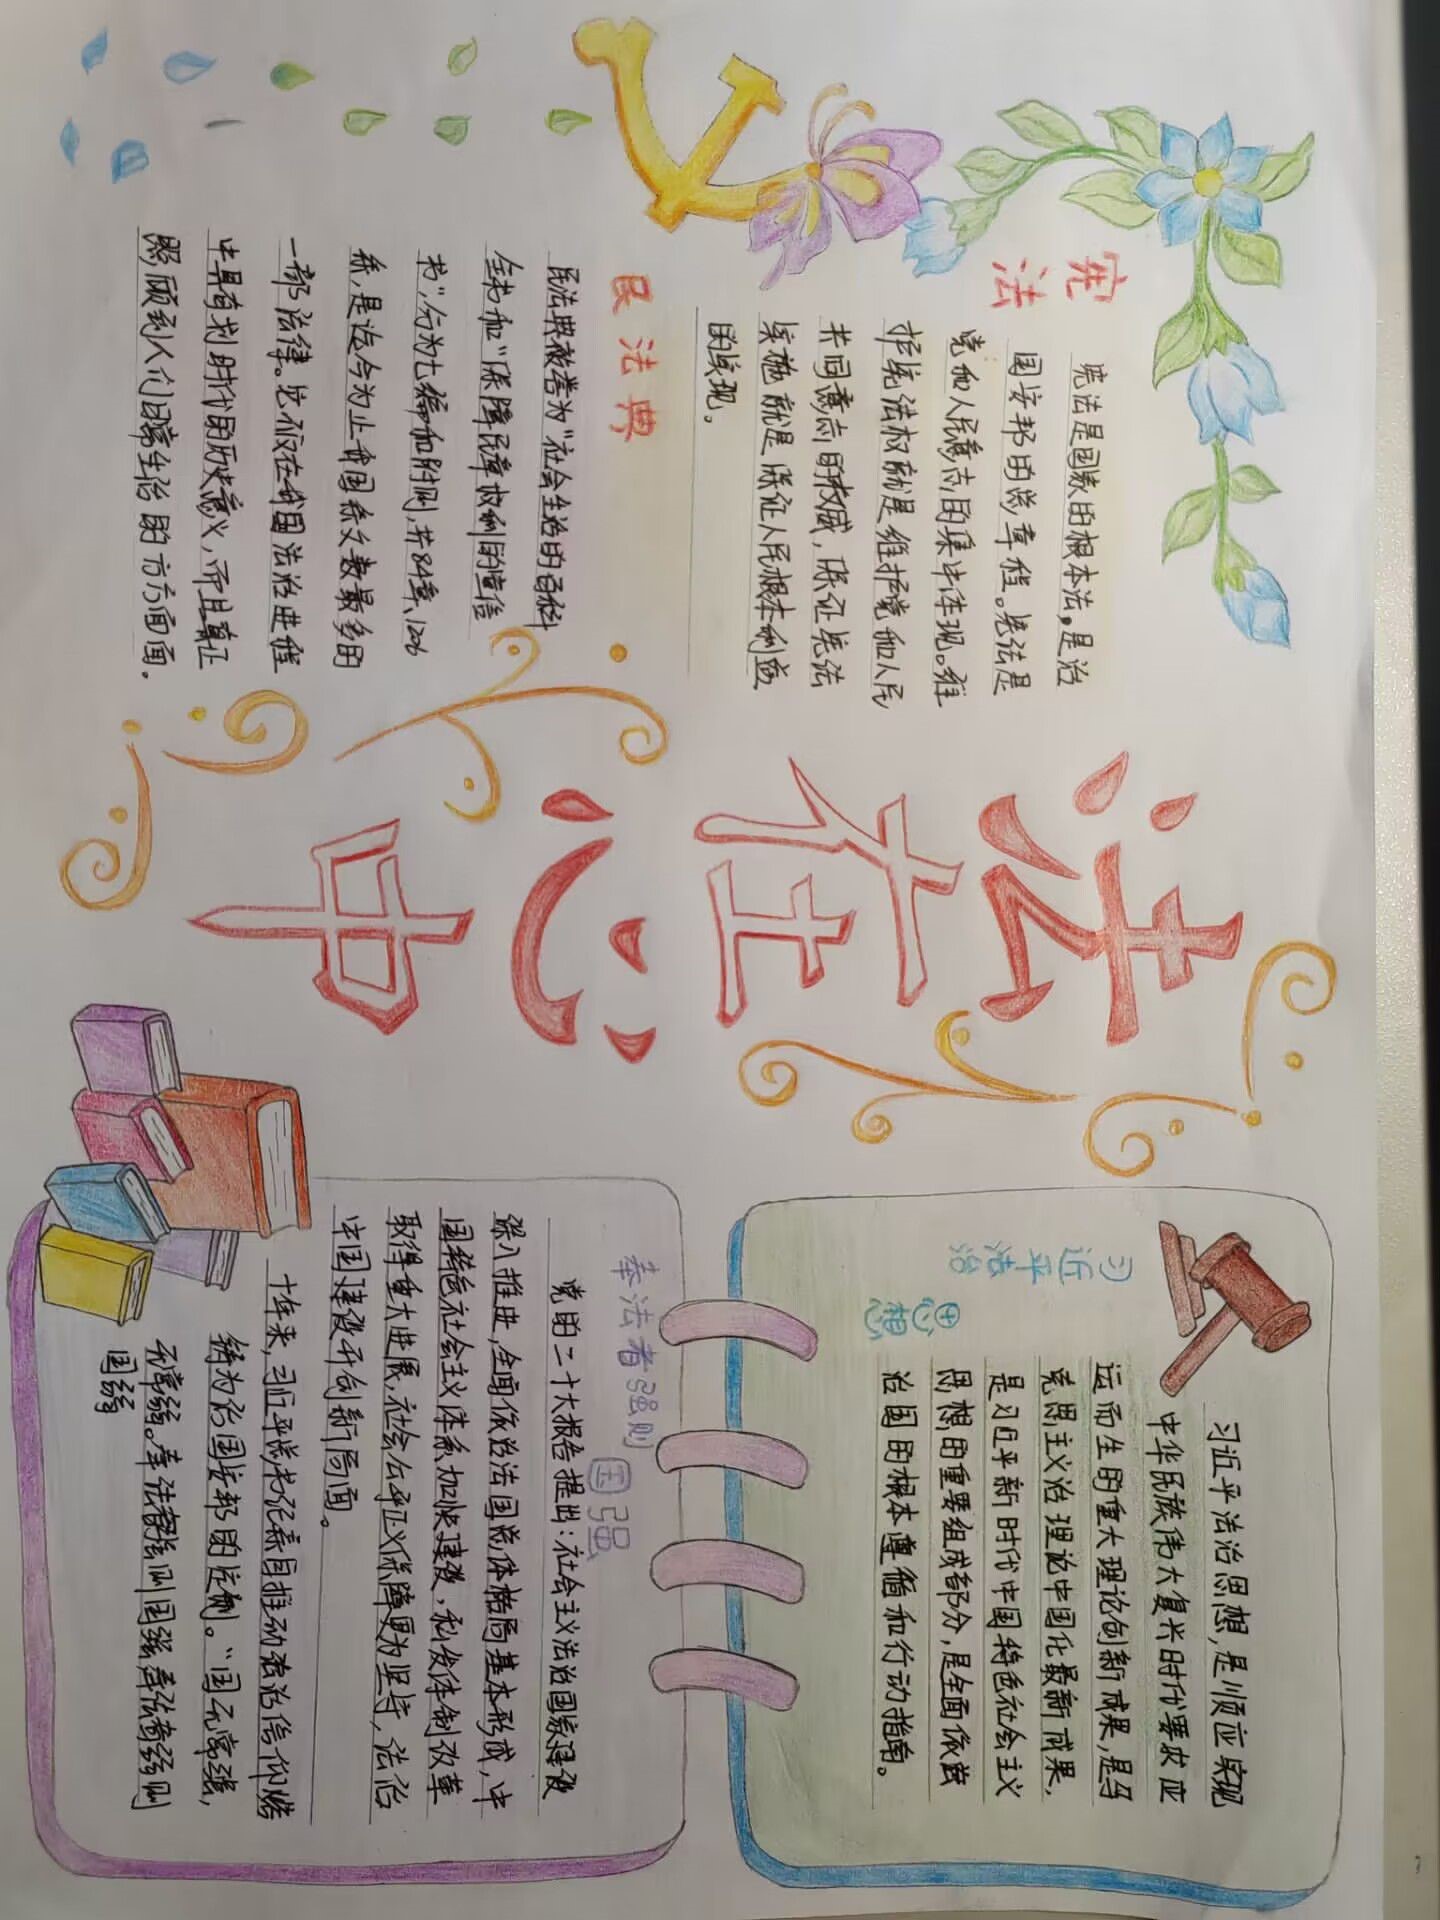 法在心中
宪
法
宪法是国家的根本法,是治
国安邦的总章程。宪法是
党和人民意志的集中体现。维
护宪法权就是维护党和人民
共同意志的权威,保证宪法
实施就是保证人民根本利益
的实现。
民法典
民法典被誉为“社会生活的百科
全书”和“保障民章权利的宣信
书”,分为七编和附则,共84章、126
条,是迄今为止我国条文数最多的
一部法律。它不仅在我国法治进程
中具有划时代的历史意义,而且真证
照顾到人们日常生活的方方面面。
习近平法治
思想
习近平法治思想,是顺应实现
中华民族伟大复兴时代要求应
运而生的重大理论创新成果,是马
克思主义治理论中国化最新成果,
是习近平新时代中国特色社会主义
思想的重要组成部分,是全面依法
治国的根本遵循和行动指南。
奉法者强则
国强
党的二十大报告提出:社会主义法治国家建设
深入推进,全面依法治国总体格局基本形成,中
国特色社会主义体系加快建设,私发体制改革
取得重大进展,社会公平正义保障更为坚持,法治
中国建设开创新局面。
十年来,习近平总书记亲自推动法治信仰
铸为治国安邦的。“国无常强,
无常弱。奉法者强则国强奉法者弱则
国弱